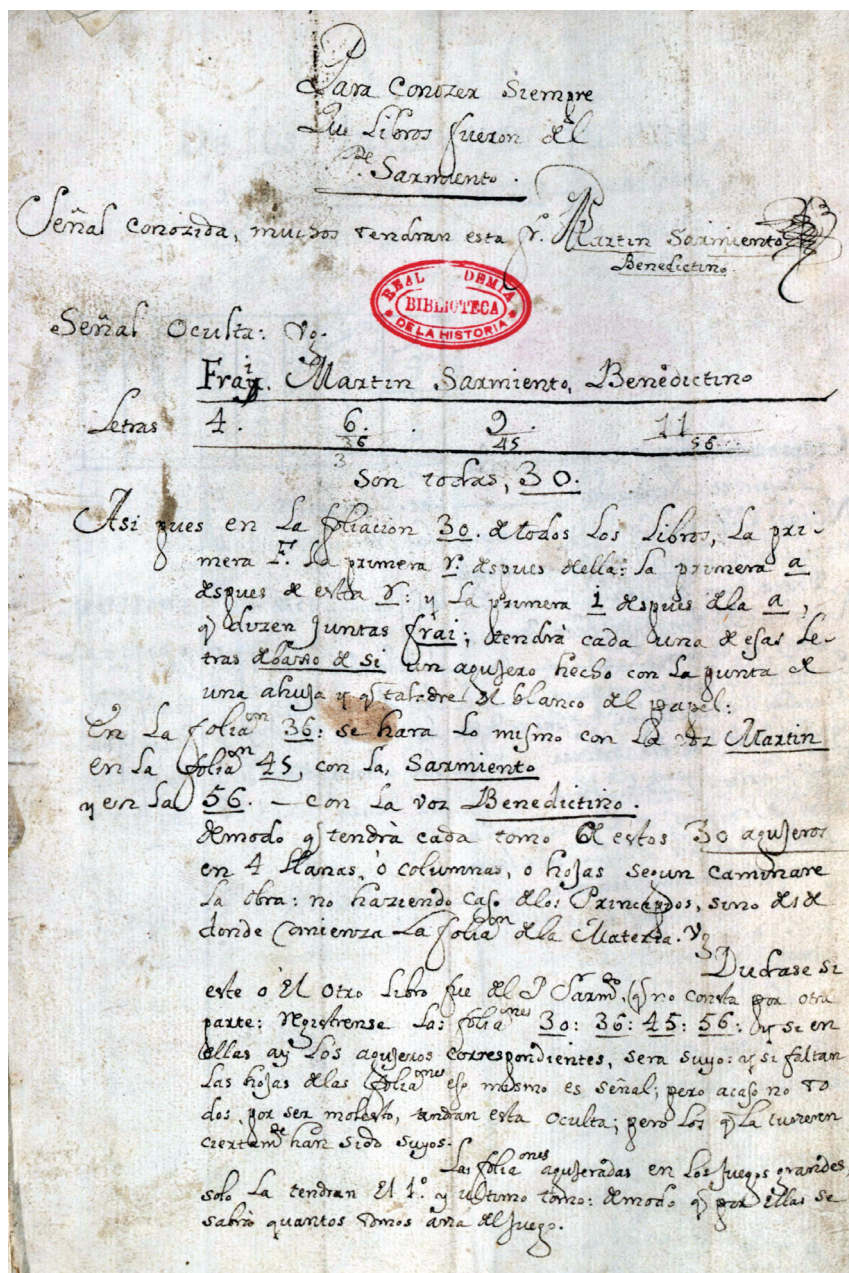 Para Conozer Siempre
Que Libros fueron del
P.e Sarmiento.
Señal Conozida, muchos tendran esta fr. Martin Sarmiento
Benedictino.
REAL ACADEMIA
BIBLIOTECA
DE LA HISTORIA
Señal Oculta: Vg.
Fray. Martin Sarmiento, Benedictino
i
Letras 4. 6. 9. 11
36 45 56.
3
Son todas, 30.
Asi pues en La foliacion 30. de todos Los Libros, La pri-
mera F. La primera r. despues della: La primera a
despues de esta r: y La primera i despues dela a,
q dizen Juntas frai; tendrà cada una de esas Le-
tras debaxo de si un agujero hecho con La punta de
una ahuja y q taladre el blanco del papel:
En La folia.on 36: se hara Lo mismo con La voz Martin
en La folia.on 45, con La, Sarmiento
y en La 56. – con La voz Benedictino.
demodo q tendrà cada tomo de estos 30 agujeros
en 4 Llanas, ò columnas, o hojas segun caminare
La obra: no haziendo Caso delos Principios, sino desde
donde Comienza La folia.on dela Materia. Vg
Dudrase si
este o El otro Libro fue del P Sarm.to, q no consta por otra
parte: registrense Las folia.ones 30: 36: 45: 56: y si en
ellas ay Los agujeros correspondientes, sera suyo: y si faltan
Las hojas delas folia.ones eso mismo es señal; pero acaso no to
dos, por ser molesto, tendran esta oculta; pero Los q La tuvieren
ciertam.te han sido suyos.
Las folia.ones agujeradas en Los Juegos grandes,
solo La tendran El 1.º y ultimo tomo: demodo q por ellas se
sabrà quantos tomos avia del Juego.